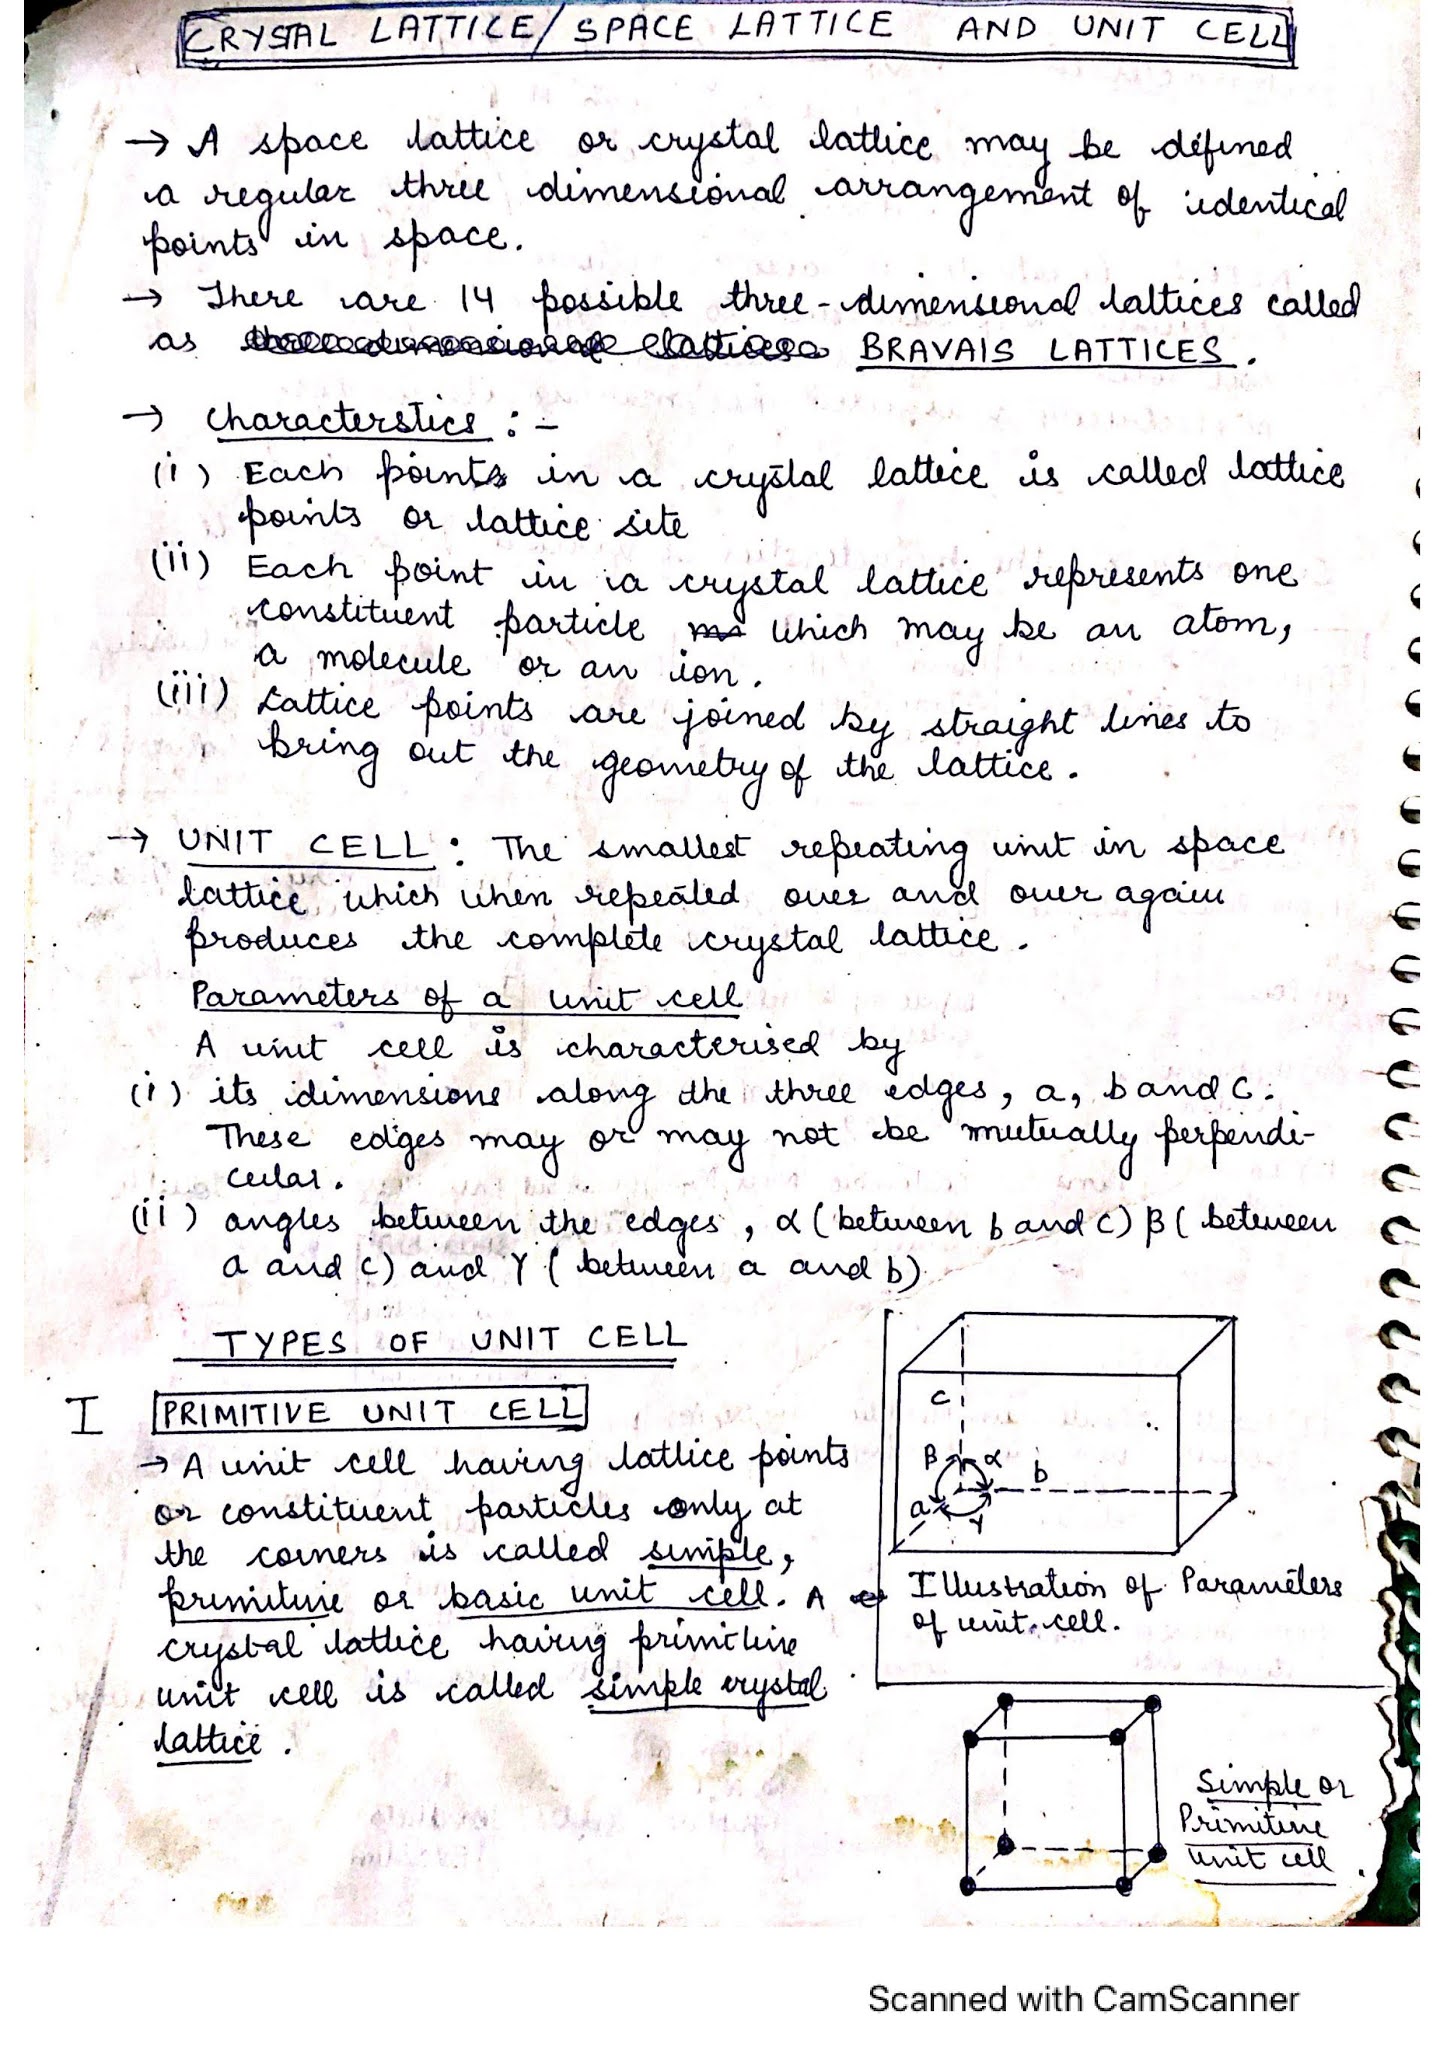 CRYSTAL LATTICE/SPACE LATTICE AND UNIT CELL
→ A space lattice or crystal lattice may be defined
a regular three dimensional arrangement of identical
points in space.
→ There are 14 possible three-dimensional lattices called
as BRAVAIS LATTICES.
→ Characterstics :-
(i) Each points in a crystal lattice is called lattice
points or lattice site
(ii) Each point in a crystal lattice represents one
constituent particle which may be an atom,
a molecule or an ion.
(iii) Lattice points are joined by straight lines to
bring out the geometry of the lattice.
→ UNIT CELL : The smallest repeating unit in space
lattice which when repeated over and over again
produces the complete crystal lattice.
Parameters of a unit cell
A unit cell is characterised by
(i) its dimensions along the three edges, a, b and c.
These edges may or may not be mutually perpendi-
cular.
(ii) angles between the edges, α (between b and c) β (between
a and c) and γ (between a and b)
TYPES OF UNIT CELL
I PRIMITIVE UNIT CELL
→ A unit cell having lattice points
or constituent particles only at
the corners is called simple,
primitive or basic unit cell. A
crystal lattice having primitive
unit cell is called simple crystal
lattice.
c
β α
b
a
γ
Illustration of Parameters
of unit cell.
Simple or
Primitive
unit cell
Scanned with CamScanner